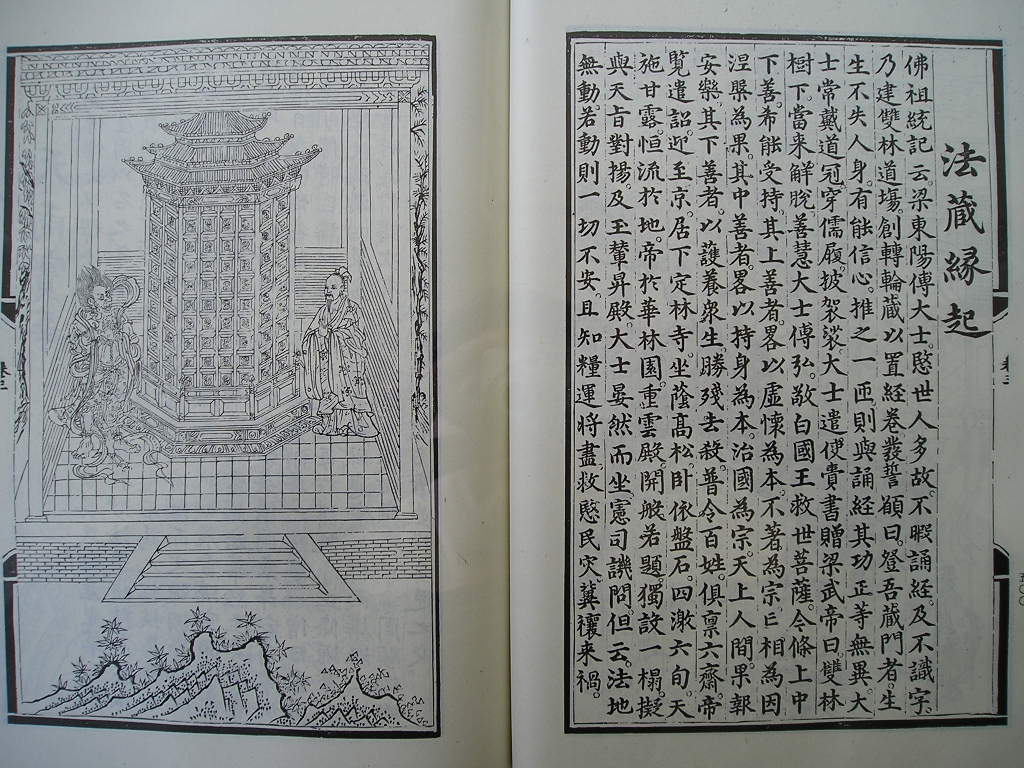 法藏緣起
佛祖統記云。梁東陽傅大士。愍世人多故。不暇誦經。及不識字。
乃建雙林道場。創轉輪藏以置經卷。發誓願曰。登吾藏門者。生
生不失人身。有能信心。推之一匝。則與誦經其功正等無異。大
士常戴道冠。穿儒履。披袈裟。大士遣使賫書贈梁武帝曰。雙林
樹下。當來解脫。善慧大士傅弘。敬白國王救世菩薩。今條上中
下善。希能受持。其上善者。畧以虛懷為本。不著為宗。亡相為因
涅槃為果。其中善者。畧以持身為本。治國為宗。天上人間。果報
安樂。其下善者。以護養衆生。勝殘去殺。普令百姓。俱禀六齋。帝
覽遣詔。迎至京。居下定林寺。坐蔭高松。卧依盤石。四澈六旬。天
施甘露。恒流於地。帝於華林園。重雲殿。開般若題。獨設一榻。擬
與天旨對揚。及玉輦昇殿。大士晏然而坐。憲司譏問。但云。法地
無動。若動則一切不安。且知糧運將盡。救愍民灾。冀禳來禍。